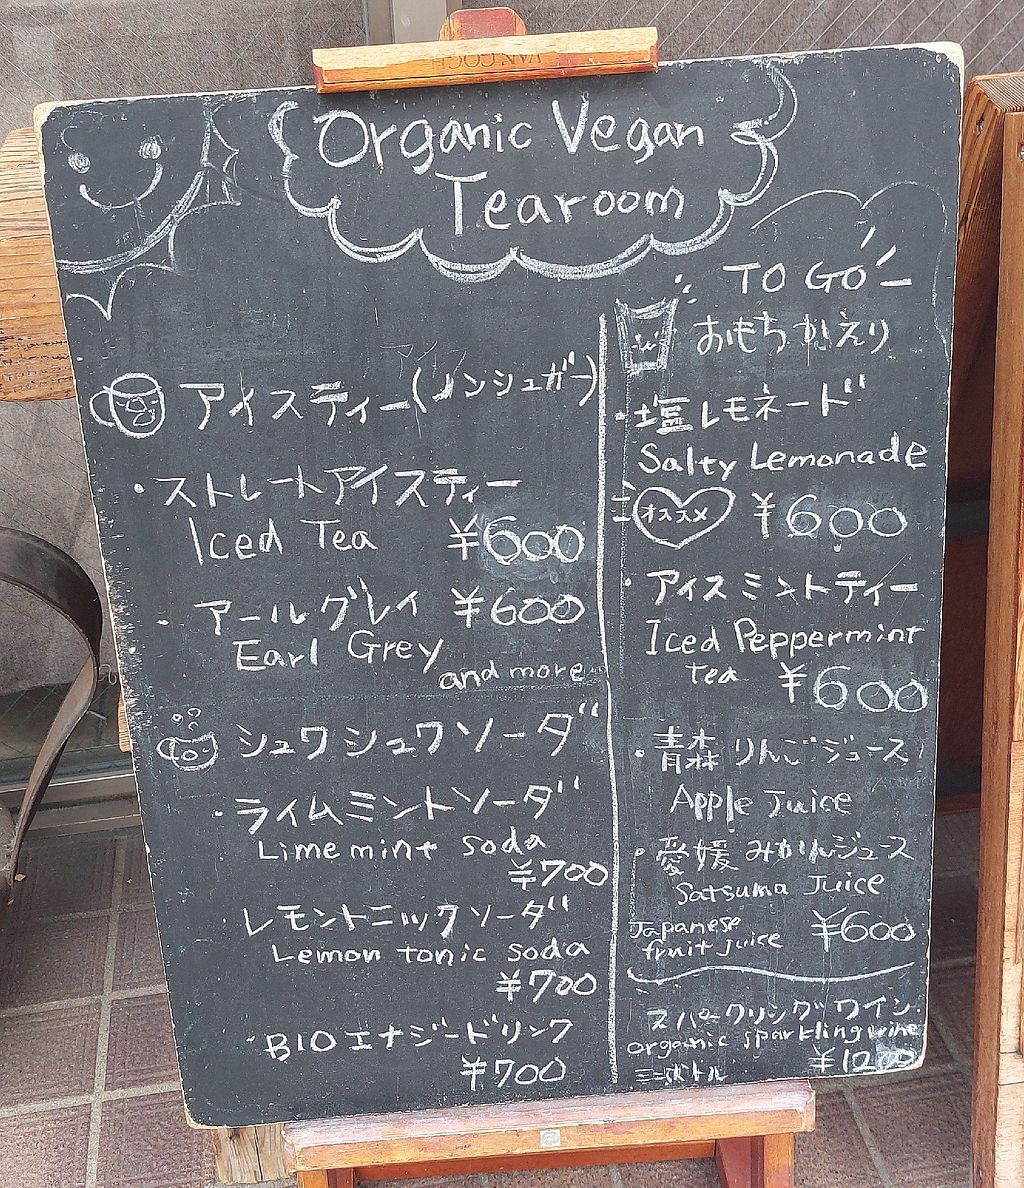 Organic Vegan
Tearoom
アイス
アイスティー(ノンシュガー)
・ストレートアイスティー
Iced Tea ¥600
・アールグレイ ¥600
Earl Grey
and more
シュワシュワソーダ
・ライムミントソーダ
Lime mint soda
¥700
・レモントニックソーダ
Lemon tonic soda
¥700
・BIOエナジードリンク
¥700
TO GO
おもちかえり
・塩レモネード
Salty Lemonade
オススメ ¥600
・アイスミントティー
Iced Peppermint
Tea ¥600
・青森りんごジュース
Apple Juice
・愛媛みかんジュース
Satsuma Juice
Japanese
fruit juice ¥600
スパークリングワイン
organic sparkling wine
ミニボトル ¥1200